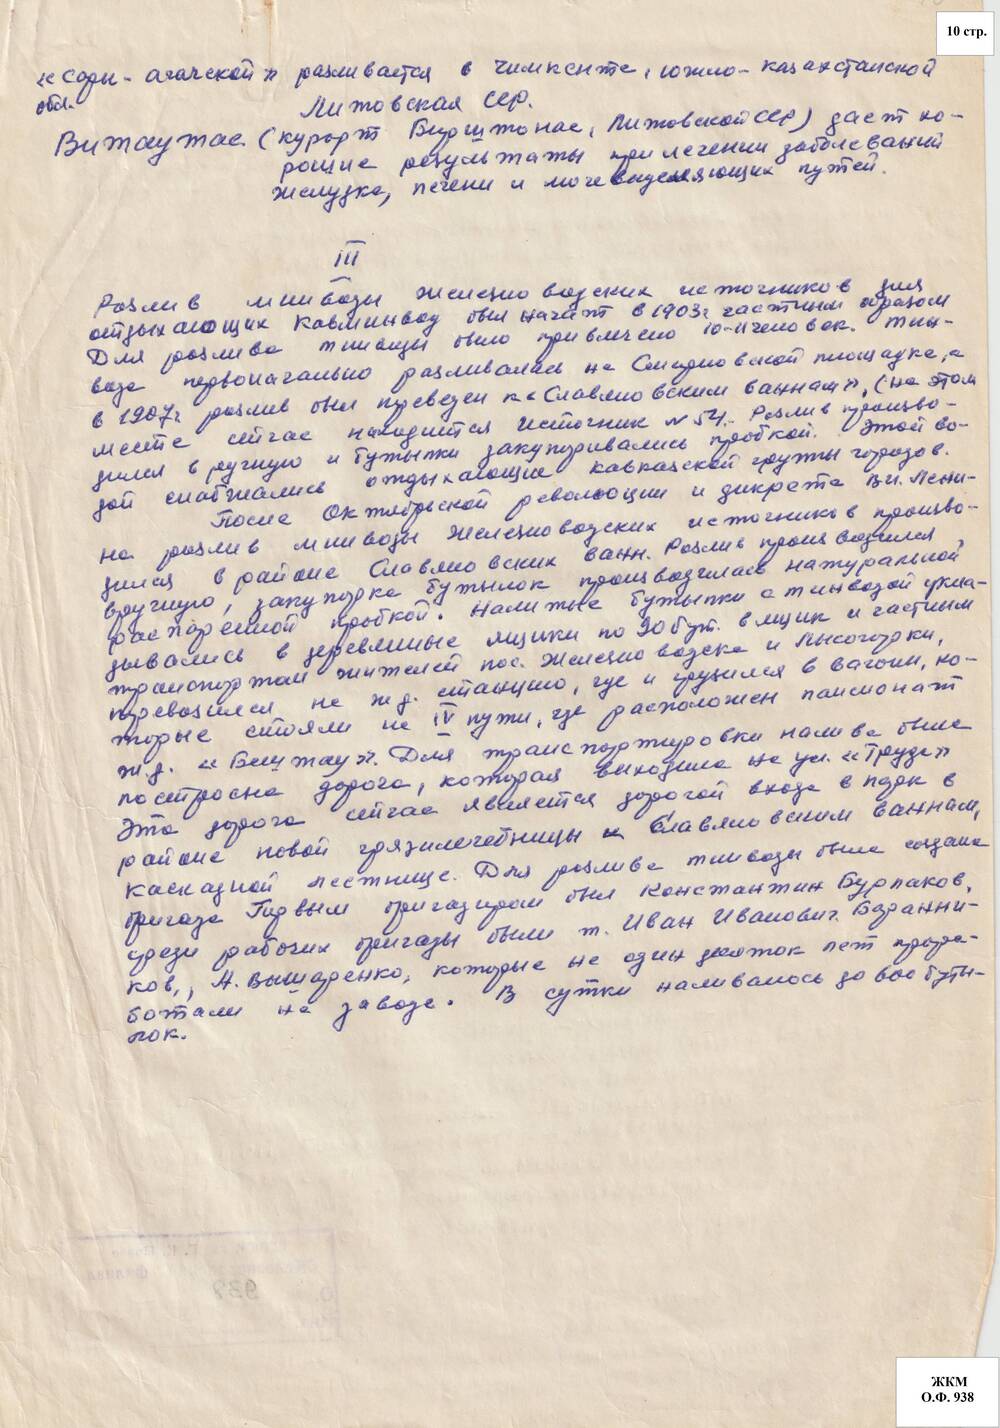 10 стр.
«Сары-агачской» разливается в Чимкенте, южно-казахстанской
обл.
Литовская ССР.
Витаутас. (курорт Бирштонас, Литовской ССР) дает хо-
рошие результаты при лечении заболеваний
желудка, печени и мочевыделяющих путей.
III
Розлив минводы железноводских источников для
отдыхающих Кавминвод был начат в 1903г частным образом
Для розлива минводы было привлечено 10-11 человек. Мин-
вода первоначально разливалась на Смирновской площадке, а
в 1907г розлив был переведен к «Славяновским ваннам», (на этом
месте сейчас находится источник № 54. Розлив произво-
дился в ручную и бутылки закупоривались пробкой. Этой во-
дой снабжались отдыхающие кавказской группы городов.
После Октябрьской революции и декрета В.И. Лени-
на розлив минводы железноводских источников произво-
дился в районе Славяновских ванн. Розлив производился
вручную, закупорка бутылок производилась натуральной
распаренной пробкой. Налитые бутылки с минводой укла-
дывались в деревянные ящики по 90 бут. в ящик и частным
транспортом жителей пос. Железноводска и Лысогорки,
перевозился на ж.д. станцию, где и грузился в вагоны, ко-
торые стояли на IV пути, где расположен пансионат
ж.д. «Бештау». Для транспортировки налива была
построена дорога, которая выходила на ул. «Труда»
Эта дорога сейчас является дорогой входа в парк в
районе новой грязелечебницы к Славяновским ваннам,
каскадной лестнице. Для розлива минводы была создана
бригада Первым бригадиром был Константин Бурлаков,
среди рабочих бригады были т. Иван Иванович Баранни-
ков,, А. Вышаренко, которые не один десяток лет прора-
ботали на заводе. В сутки наливалось до 800 буты-
лок.
938
ЖКМ
О.Ф. 938